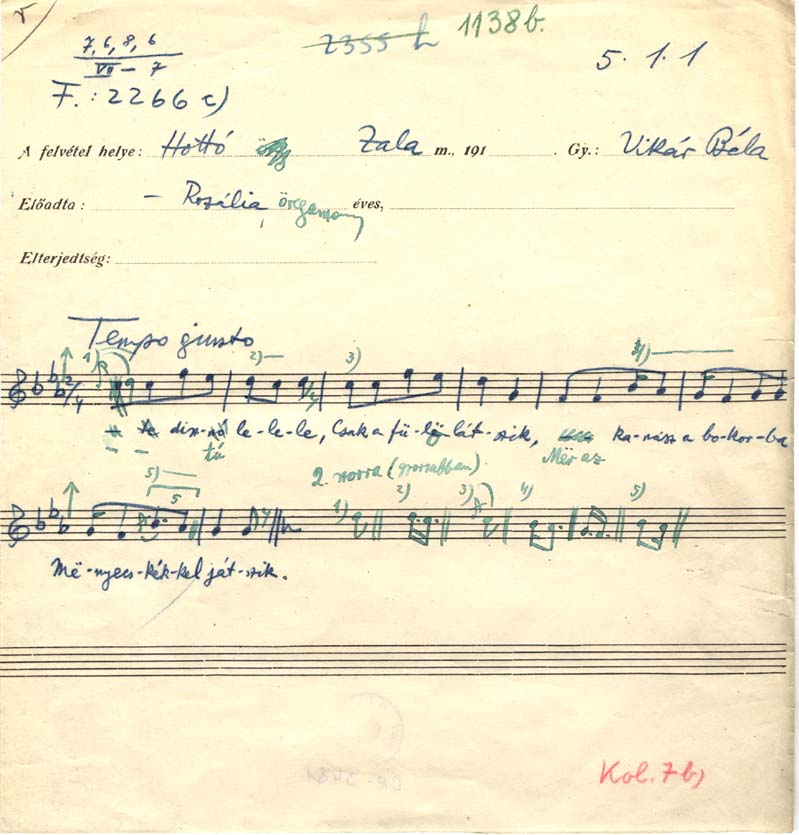 7, 6, 8, 6
VII – 7
2355 h
1138b.
5. 1. 1
F.: 2266 c)
A felvétel helye: Hottó Zala m., 191 . Gy.: Vikár Béla
Előadta : – Rozália, öregasszony éves,
Elterjedtség:
Tempo giusto
1) 2) 3) 4)
2/4
disz-nó le-le-le, Csak a fü-lë lát-szik, ka-nász a bo-kor-ba
tú Mër az
2. versre (gyorsabban)
5) 5 1) 2) 3) 4) 5)
Më-nyecs-kék-kel ját-szik.
Kol. 7b)